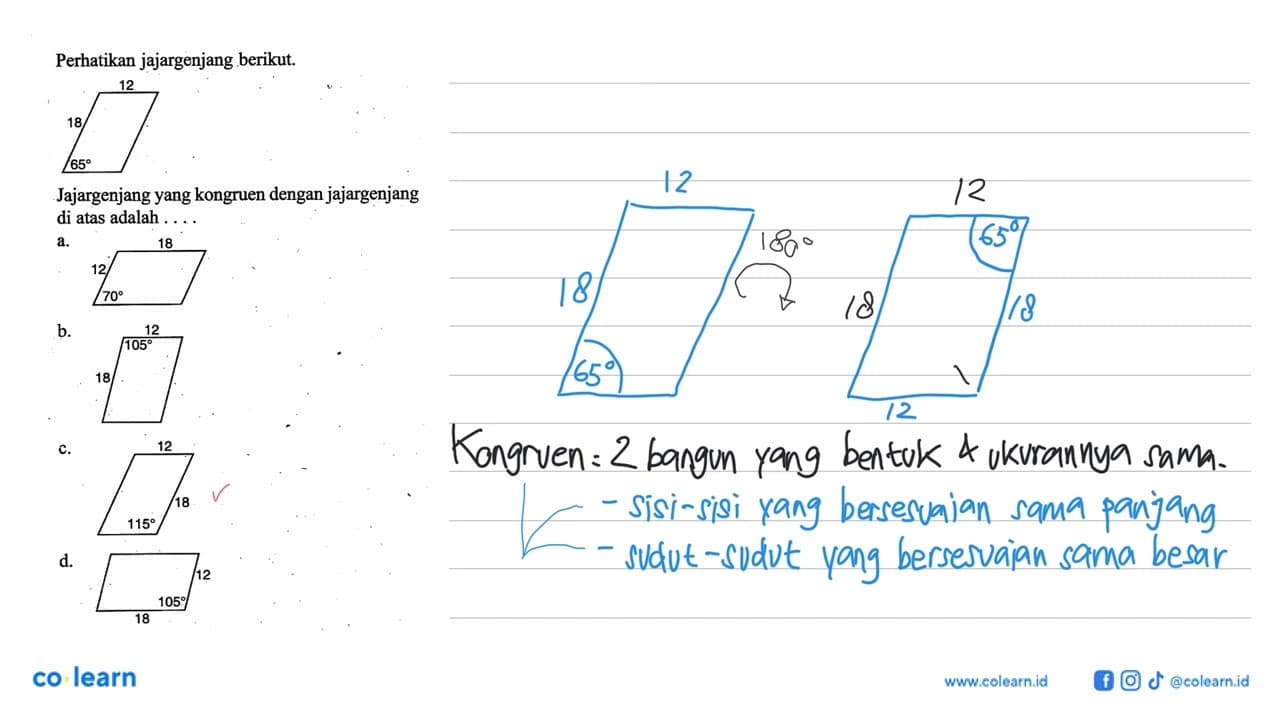 Perhatikan jajargenjang berikut.
12
18
65°
Jajargenjang yang kongruen dengan jajargenjang
di atas adalah . . . .
a.
18
12
70°
b.
12
105°
18
c.
12
18
115°
d.
12
105°
18
12
18
65°
180°
12
65°
18
18
12
Kongruen = 2 bangun yang bentuk & ukurannya sama.
- sisi-sisi yang bersesuaian sama panjang
- sudut-sudut yang bersesuaian sama besar
co learn
www.colearn.id
@colearn.id